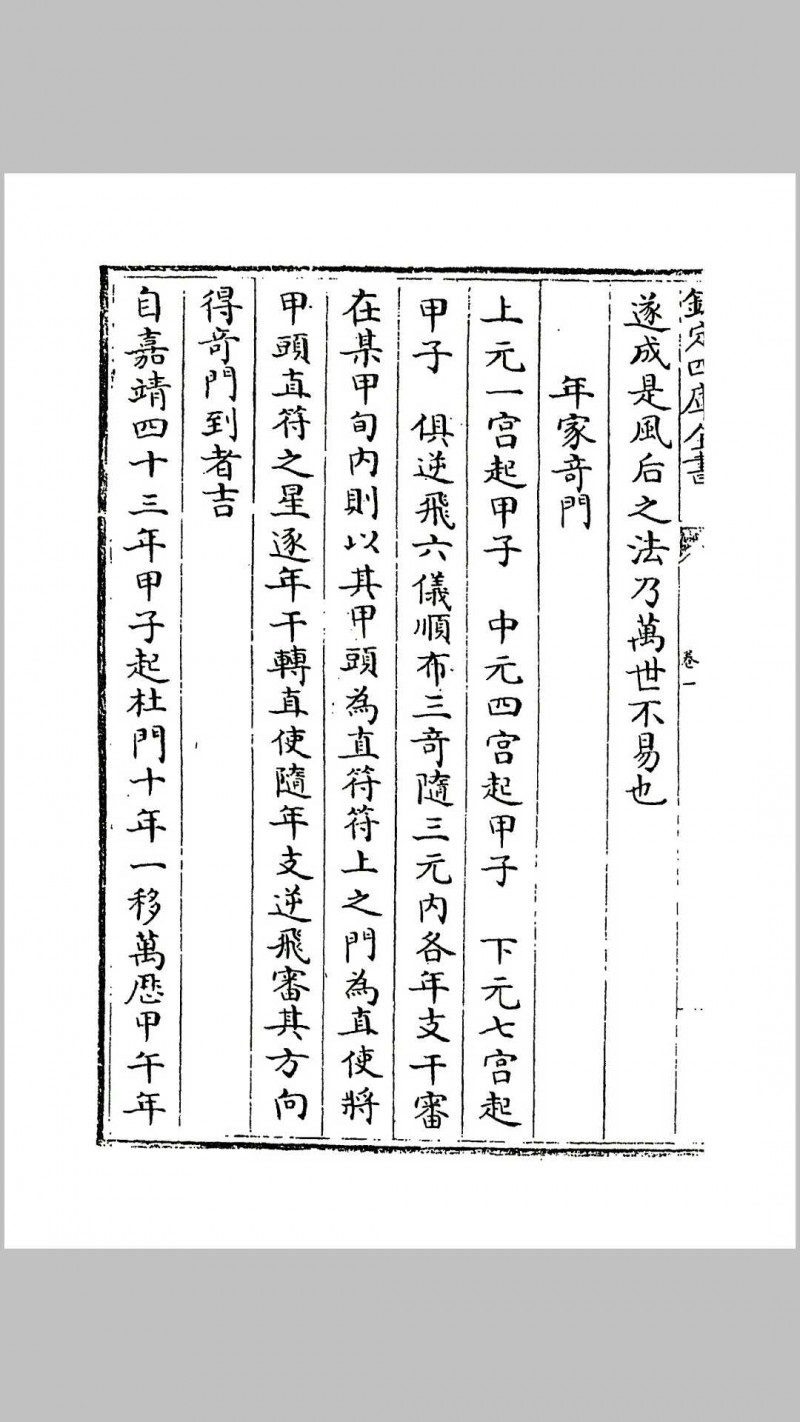 欽定四庫全書
卷一
遂成是風后之法乃萬世不易也
年家竒門
上元一宫起甲子　中元四宫起甲子　下元七宫起
甲子　俱逆飛六儀順布三竒隨三元内各年支干審
在某甲旬内則以其甲頭為直符符上之門為直使將
甲頭直符之星逐年干轉直使隨年支逆飛審其方向
得竒門到者吉
自嘉靖四十三年甲子起杜門十年一移萬歴甲午年